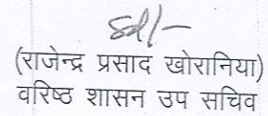 Sd/-
(राजेन्द्र प्रसाद खोरानिया)
वरिष्ठ शासन उप सचिव